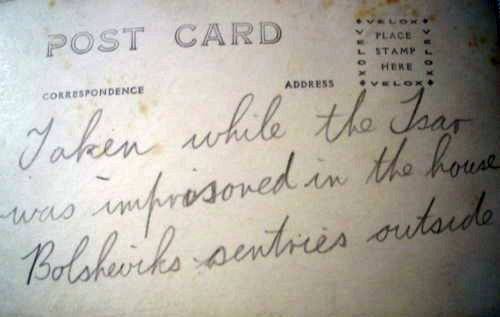 POST CARD
VELOX
VELOX PLACE VELOX
STAMP
HERE
VELOX
CORRESPONDENCE ADDRESS
Taken while the Tsar
was imprisoned in the house
Bolsheviks sentries outside